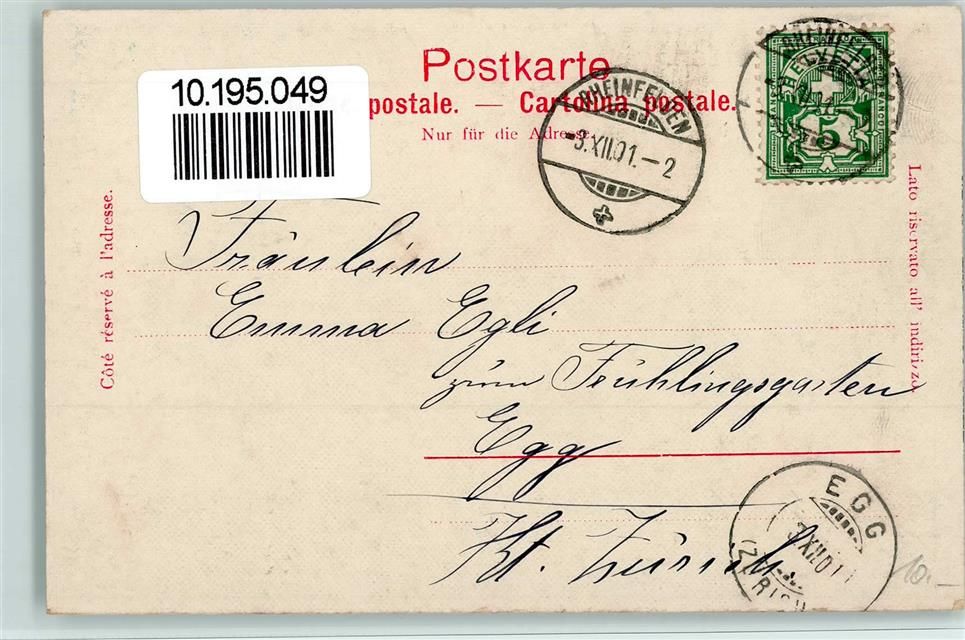 Postkarte
10.195.049
postale. — Cartolina postale.
Nur für die Adresse.
RHEINFELDEN
-3.XII.01.-2
HELVETIA
5
Côté réservé à l'adresse.
Lato riservato all' indirizzo
Fräulein
Emma Egli
zum Frühlingsgarten
Egg
Kt. Zürich
EGG
XII.01
(ZÜRICH)
10.-